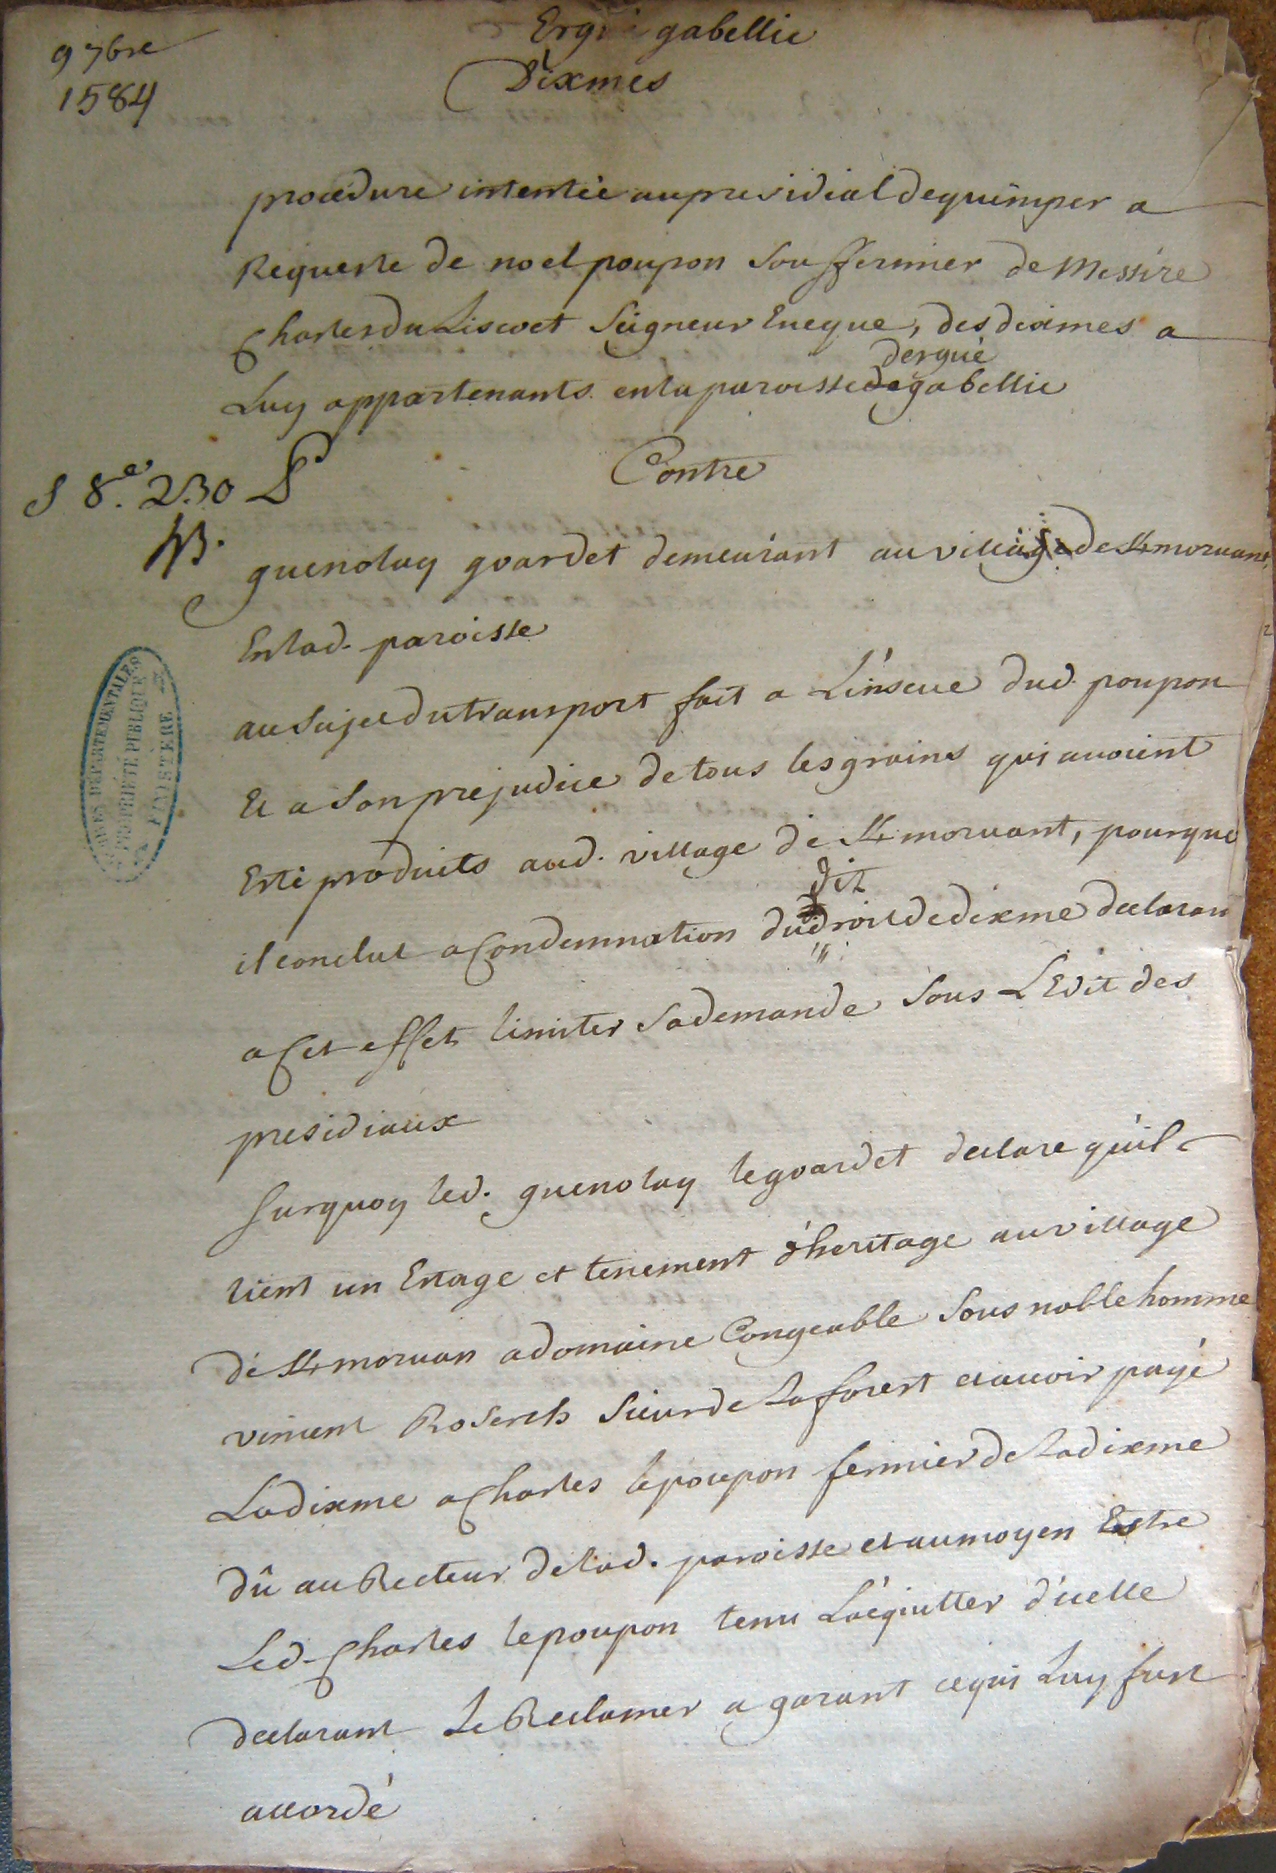 9 7bre
1584
Ergué gabellic
Dixmes
procedure intentée au presidial de quimper a
Requeste de noel poupon Souffermier de Messire
Charles du Liscoet Seigneur Eveque, des dixmes a
dergué
Luy appartenants en la paroisse de gabellic
Contre
S 8.e 230
guenolay goardet demeurant au village de St morvant,
En lad. paroisse
au Sujet du transport fait a L'inscue dud. poupon
Et a Son prejudice de tous les grains qui avoient
Esté produits aud. village de St morvant, pourquoi
dit
il conclut a Condemnation du droit de dixme declarant
a Cet effet limiter Sa demande Sous L'Edit des
presidiaux
Surquoy led. guenolay le goardet declare quil
tient un Estage et tenement d'heritage au village
de St morvan a domaine Congeable Sous noble homme
vincent Roserch Sieur de La forest et avoir payé
La dixme a Charles le poupon fermier de La dixme
dû au Recteur de lad. paroisse et au moyen Estre
Led. Charles le poupon tenu L'aéquitter d'icelle
declarant Le Reclamer a garant ce qui Luy fust
accordé
ARCHIVES DEPARTEMENTALES
PROPRIÉTÉ PUBLIQUE
FINISTERE